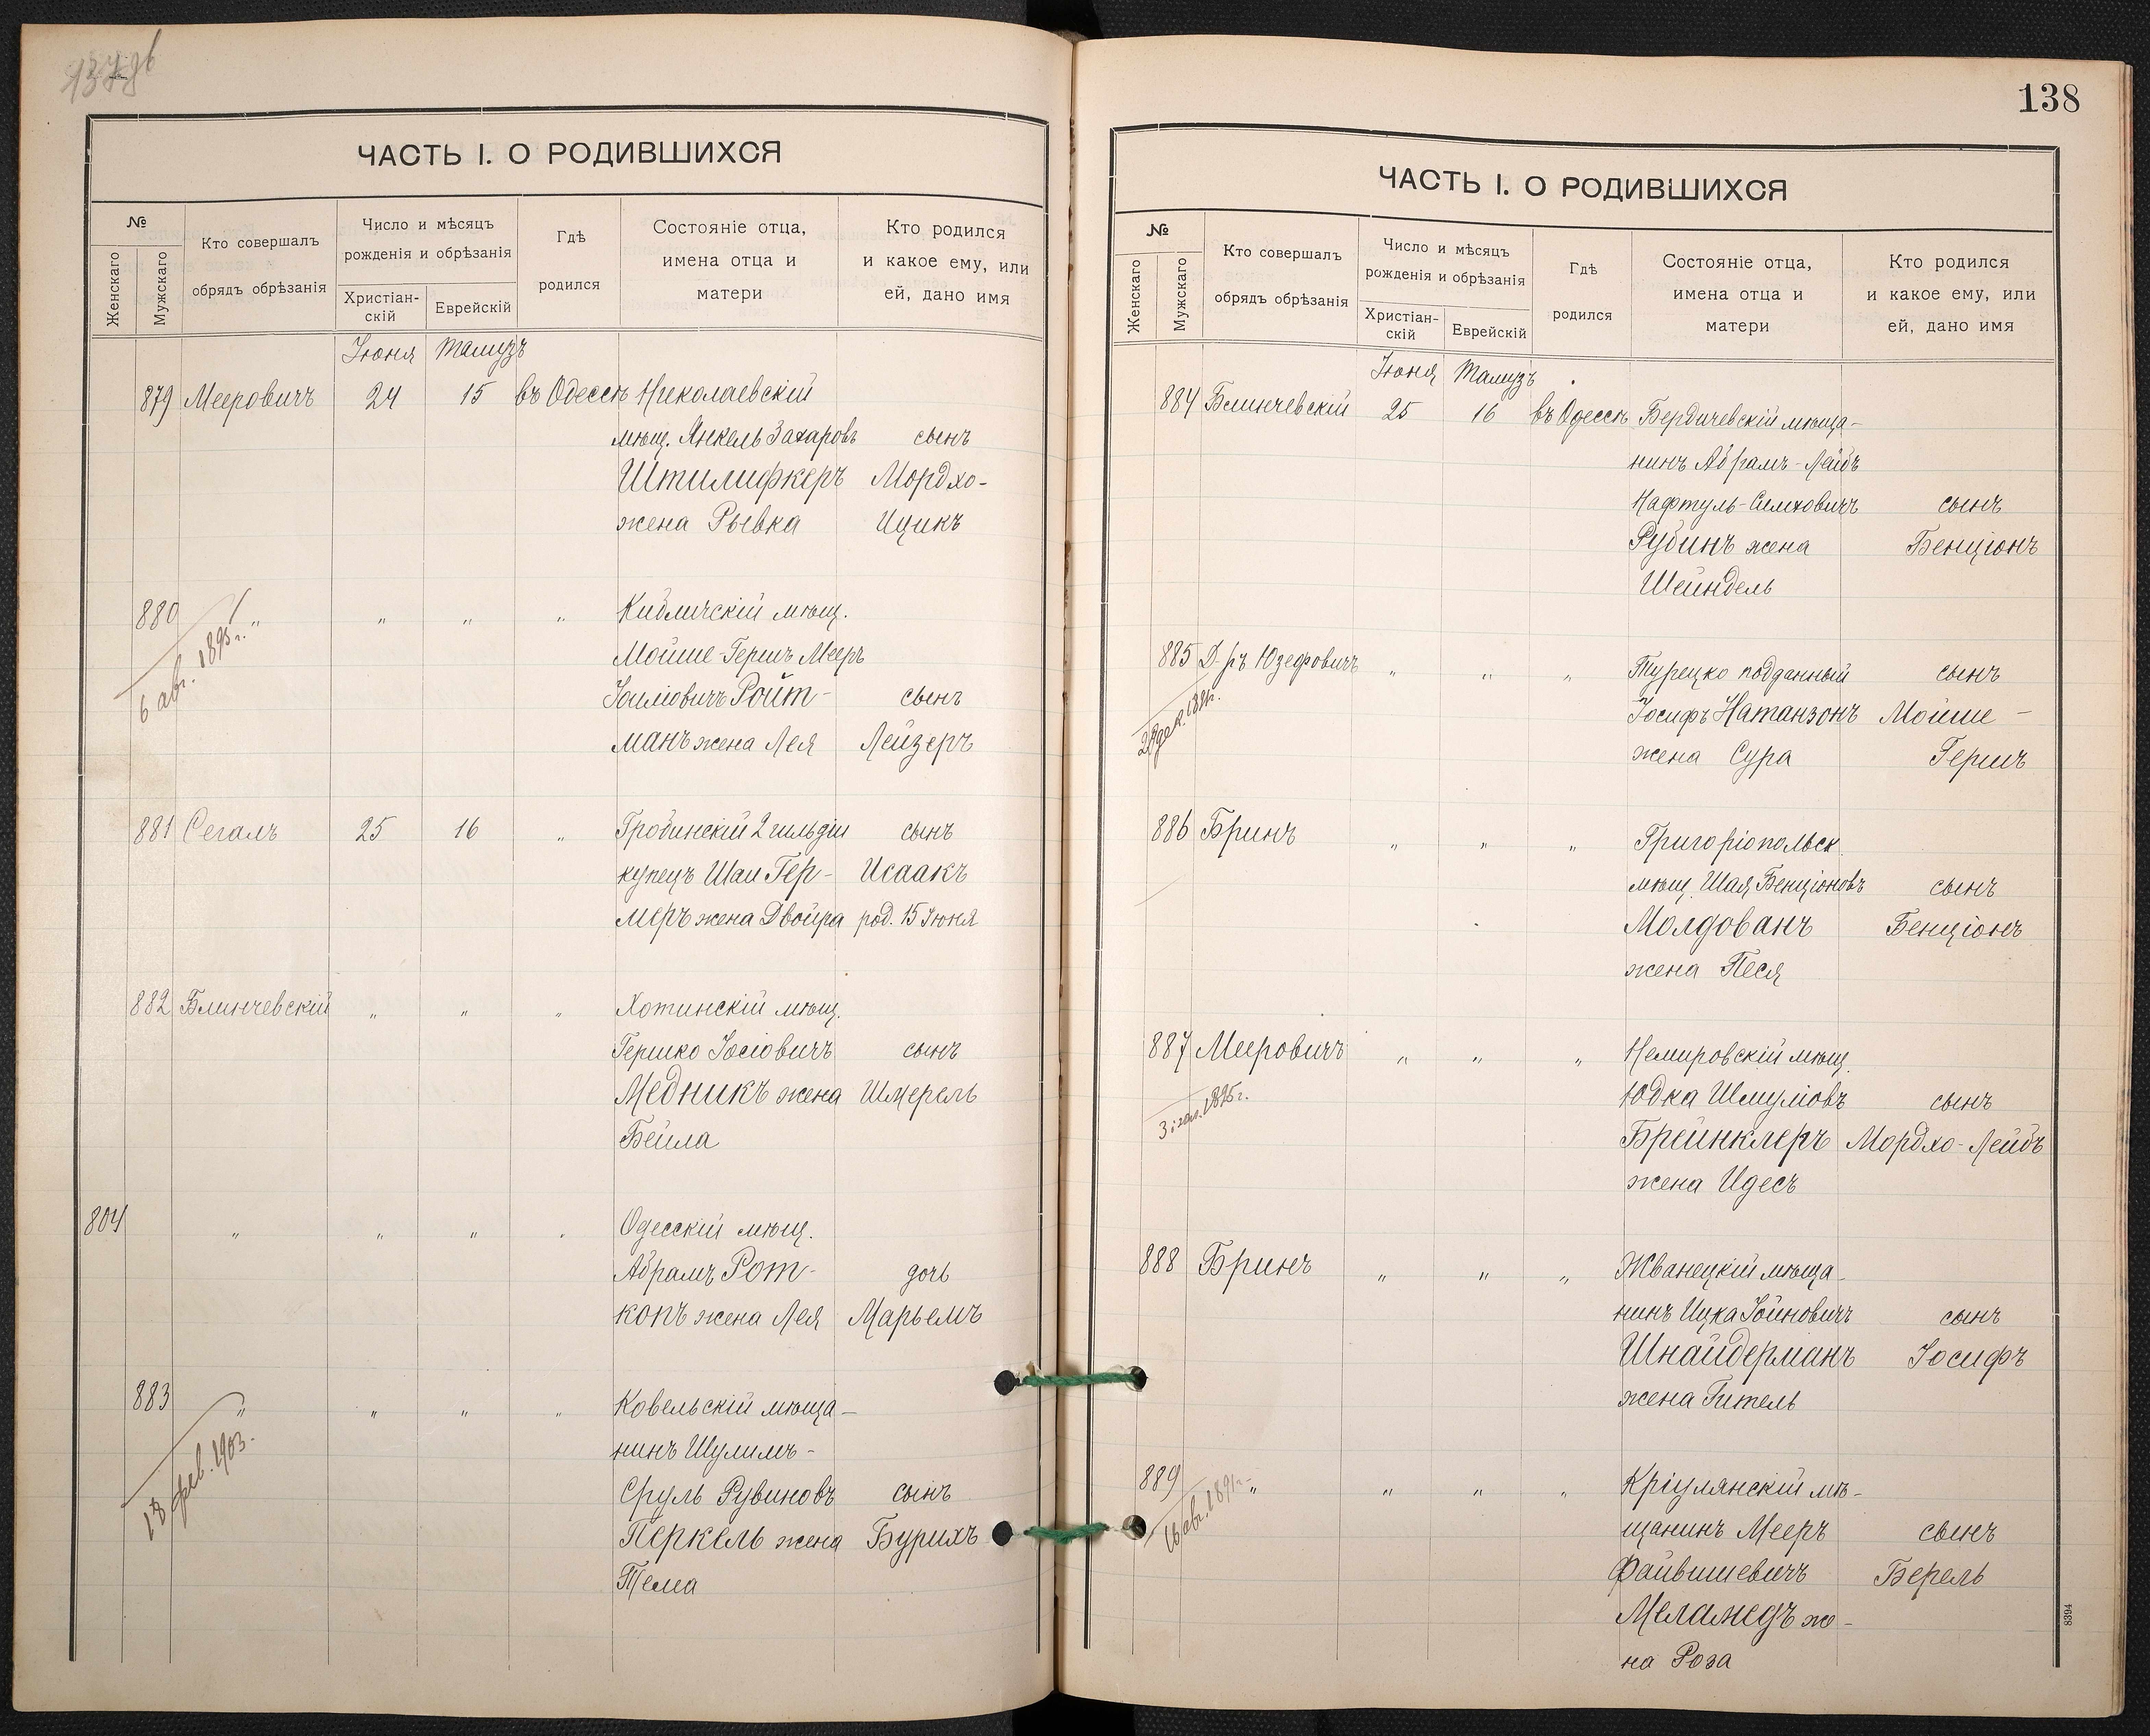 ЧАСТЬ I. О РОДИВШИХСЯ
№
Женскаго
Мужскаго
Кто совершалъ
обрядъ обрѣзанія
Число и мѣсяцъ
рожденія и обрѣзанія
Христіан-
скій
Еврейскій
Гдѣ
родился
Состояніе отца,
имена отца и
матери
Кто родился
и какое ему, или
ей, дано имя
Іюня Тамузъ
879 Мееровичъ 24 15 въ Одессѣ Николаевскій
мѣщ. Янкель Захаровъ сынъ
Штилифкеръ Мордхо-
жена Рывка Ицикъ
880 " " " " Кибличскій мѣщ.
Мойше-Гершъ Мееръ
Хаимовичъ Ройт- сынъ
манъ жена Лея Лейзеръ
6 авг. 1895 г.
881 Сегалъ 25 16 " Гробинскій 2 гильдіи сынъ
купецъ Шаи Гер- Исаакъ
меръ жена Двойра род. 15 Іюня
882 Блинчевскій " " " Хотинскій мѣщ.
Гершко Іосіовичъ сынъ
Медникъ жена Шмерель
Бейла
804 " " " " Одесскій мѣщ.
Абрамъ Рот- дочь
копъ жена Лея Марьемъ
883 " " " " Ковельскій мѣща-
нинъ Шулимъ-
Сруль Рувиновъ сынъ
Перкель жена Бурихъ
Тема
18 фев. 1903.
138
ЧАСТЬ I. О РОДИВШИХСЯ
№
Женскаго
Мужскаго
Кто совершалъ
обрядъ обрѣзанія
Число и мѣсяцъ
рожденія и обрѣзанія
Христіан-
скій
Еврейскій
Гдѣ
родился
Состояніе отца,
имена отца и
матери
Кто родился
и какое ему, или
ей, дано имя
Іюня Тамузъ
884 Блинчевскій 25 16 въ Одессѣ Бердичевскій мѣща-
нинъ Абрамъ-Лейбъ
Нафтуль-Симховичъ сынъ
Рубинъ жена Бенціонъ
Шейндель
885 Д-ръ Юзефовичъ " " " Турецко подданный сынъ
Іосифъ Натанзонъ Мойше-
жена Сура Гершъ
886 Бринъ " " " Григоріопольск.
мѣщ. Шая Бенціоновъ сынъ
Молдованъ Бенціонъ
жена Песя
887 Мееровичъ " " " Немировскій мѣщ.
Юдка Шмуліовъ сынъ
Брейнклеръ Мордхо-Лейбъ
жена Идесъ
888 Бринъ " " " Жванецкій мѣща-
нинъ Ицка Іойновичъ сынъ
Шнайдерманъ Іосифъ
жена Гитель
889 " " " " Кріулянскій мѣ-
щанинъ Мееръ сынъ
Файвишевичъ Берель
Меламедъ же-
на Роза
8394